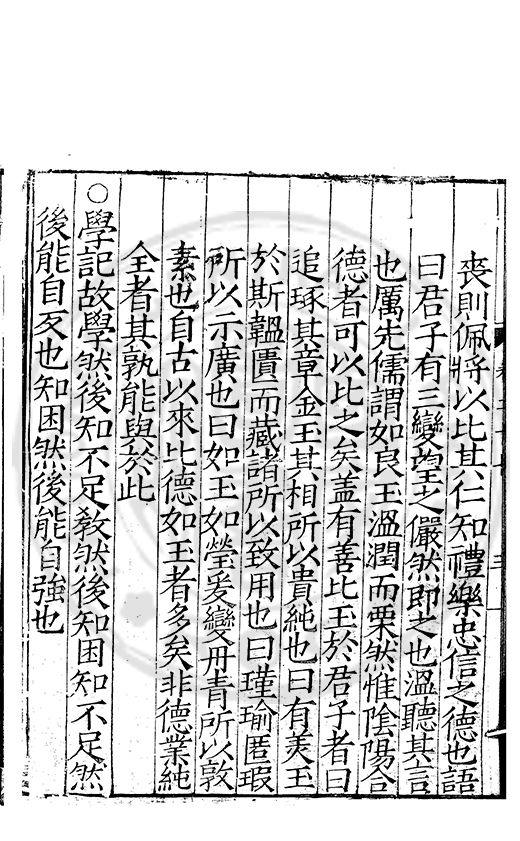 喪則佩將以比其仁知禮樂忠信之德也語
曰君子有三變望之儼然即之也溫聽其言
也厲先儒謂如良玉溫潤而栗然惟隂陽合
德者可以比之矣盖有善比玉於君子者曰
追琢其章金玉其相所以貴純也曰有美玉
於斯韞匱而藏諸所以致用也曰瑾瑜匿瑕
所以示廣也曰如玉如瑩爰變丹青所以敦
素也自古以來比德如玉者多矣非德業純
全者其孰能與於此
○學記故學然後知不足敎然後知困知不足然
後能自反也知困然後能自強也